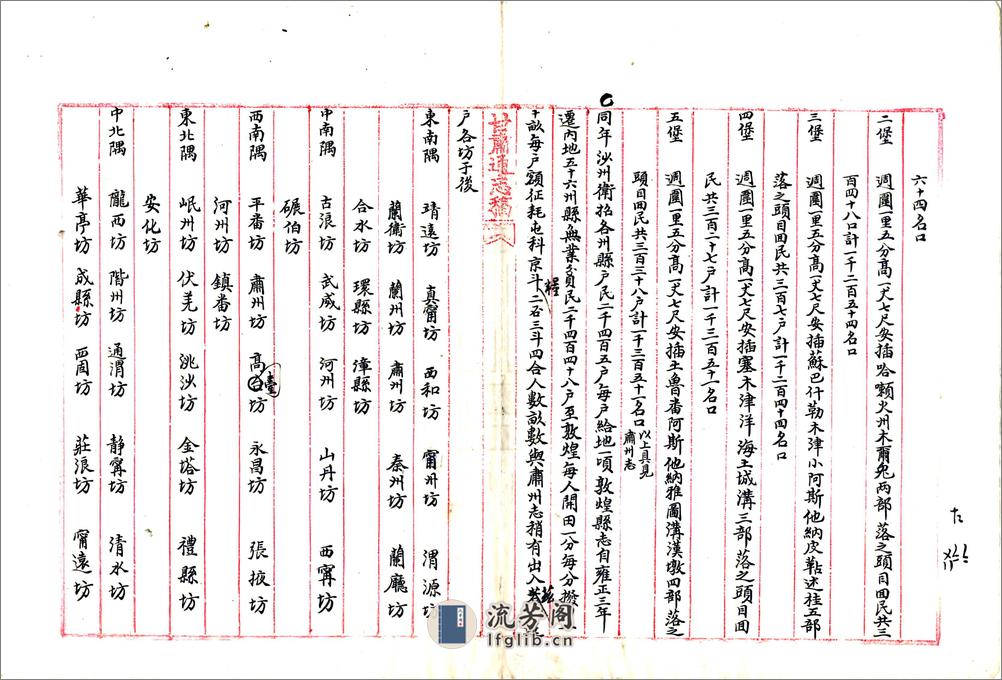 六十四名口
二堡　週圍一里五分高一丈七尺安插哈賴火州木爾兔兩部落之頭目回民共三
百四十八口計一千二百五十四名口
三堡　週圍一里五分高一丈七尺安插蘇巴什勒木津小阿斯他納皮韂述桂五部
落之頭目回民共三百七戶計一千二百四十四名口
四堡　週圍一里五分高一丈七尺安插塞木津洋海土城溝三部落之頭目回
民共三百二十七戶計一千三百五十一名口
五堡　週圍一里五分高一丈七尺安插土魯番阿斯他納雅圖溝漢墩四部落之
頭目回民共三百三十八戶計一千三百五十一名口以上具見肅州志
同年沙州衛招各州縣戶民一千四百五戶每戶給地一頃敦煌縣志自雍正三年
遷內地五十六州縣無業貧民二千四百四十八戶至敦煌每人開田一分每分撥
十畝每戶額征耗屯科糧京斗二石三斗四合人數畝數與肅州志稍有出入茲
戶各坊于後
甘肅通志稿
東南隅　靖遠坊　真甯坊　西和坊　甯州坊　渭源坊
蘭衛坊　蘭州坊　肅州坊　秦州坊　蘭廳坊
合水坊　環縣坊　漳縣坊
中南隅　古浪坊　武威坊　河州坊　山丹坊　西寧坊
碾伯坊
西南隅　平番坊　肅州坊　高臺坊　永昌坊　張掖坊
河州坊　鎮番坊
東北隅　岷州坊　伏羌坊　洮沙坊　金塔坊　禮縣坊
安化坊
中北隅　隴西坊　階州坊　通渭坊　靜寗坊　清水坊
華亭坊　成縣坊　西固坊　莊浪坊　甯遠坊
流芳阁
lfglib.cn